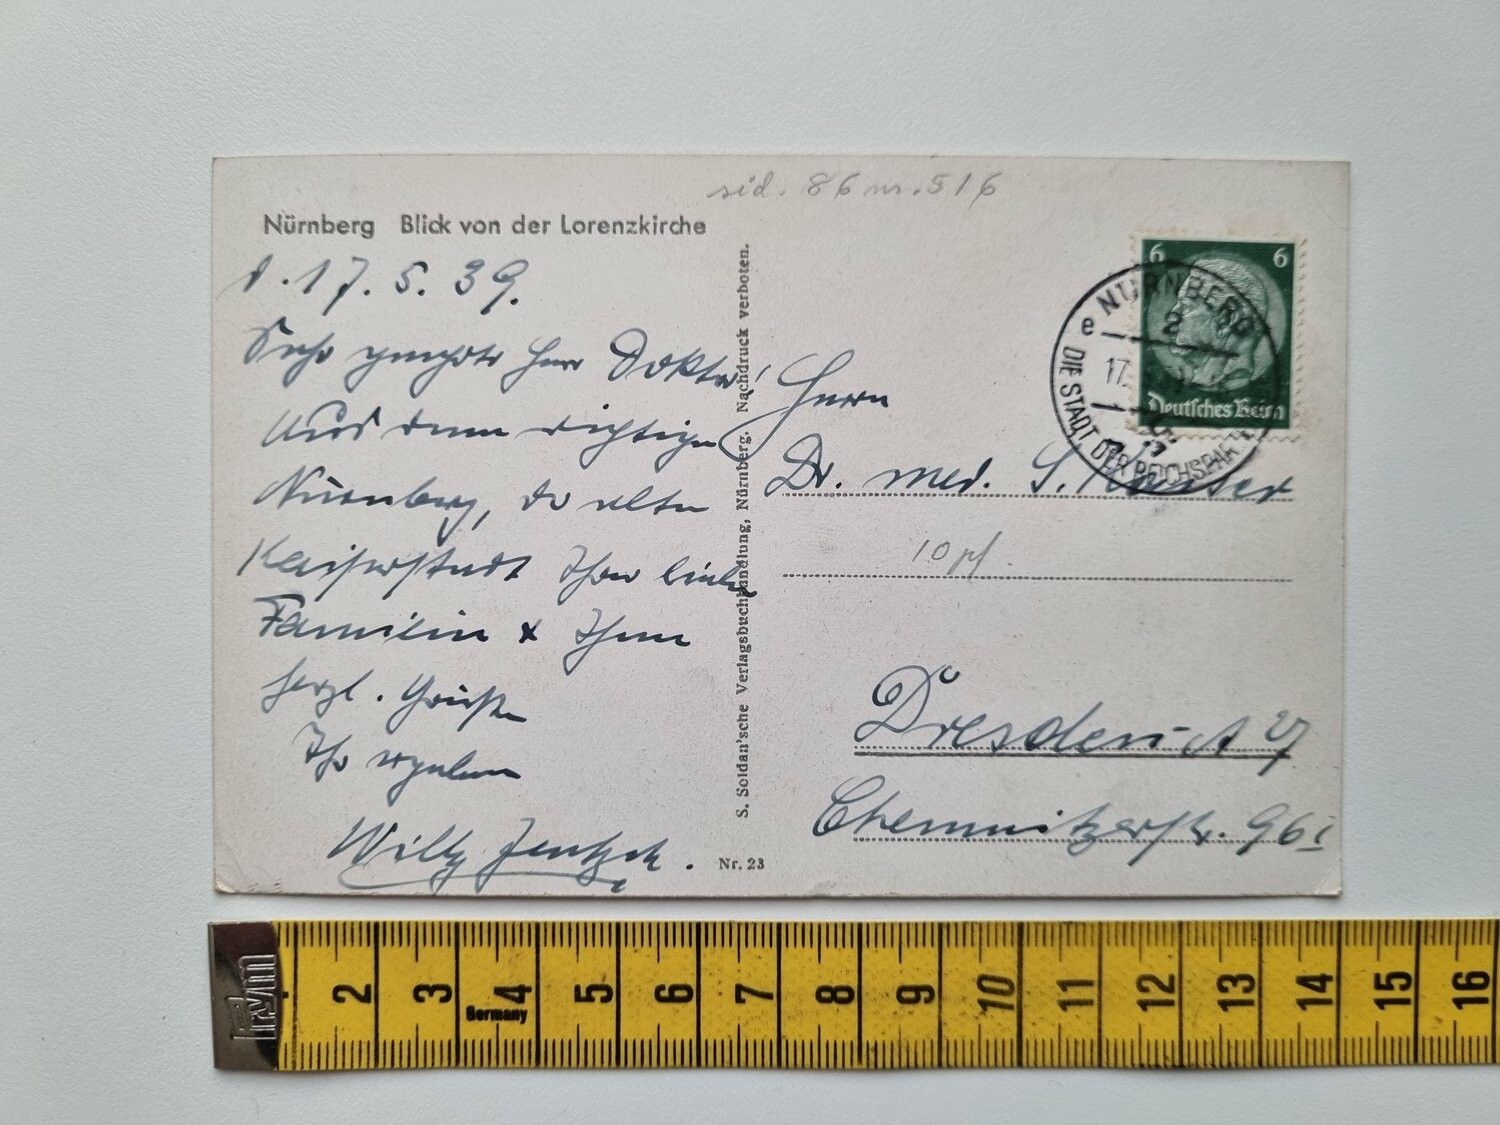 sid. 86 nr. 516
Nürnberg Blick von der Lorenzkirche
d. 17. 5. 39.
Sehr geehrter Herr Doktor!
Aus dem richtigen
Nürnberg, der alten
Kaiserstadt Ihrer lieben
Familie & Ihnen
herzl. Grüße
Ihr ergebener
Willy Jentzsch.
S. Soldan'sche Verlagsbuchhandlung, Nürnberg. Nachdruck verboten.
Nr. 23
6 6
Deutsches Reich
NÜRNBERG
2
e
17.
DIE STADT DER REICHSPART
Herrn
Dr. med. S.
10 pf.
Dresden-A 27
Chemnitzerstr. 96 I
2 3 4 5 6 7 8 9 10 11 12 13 14 15 16
Germany